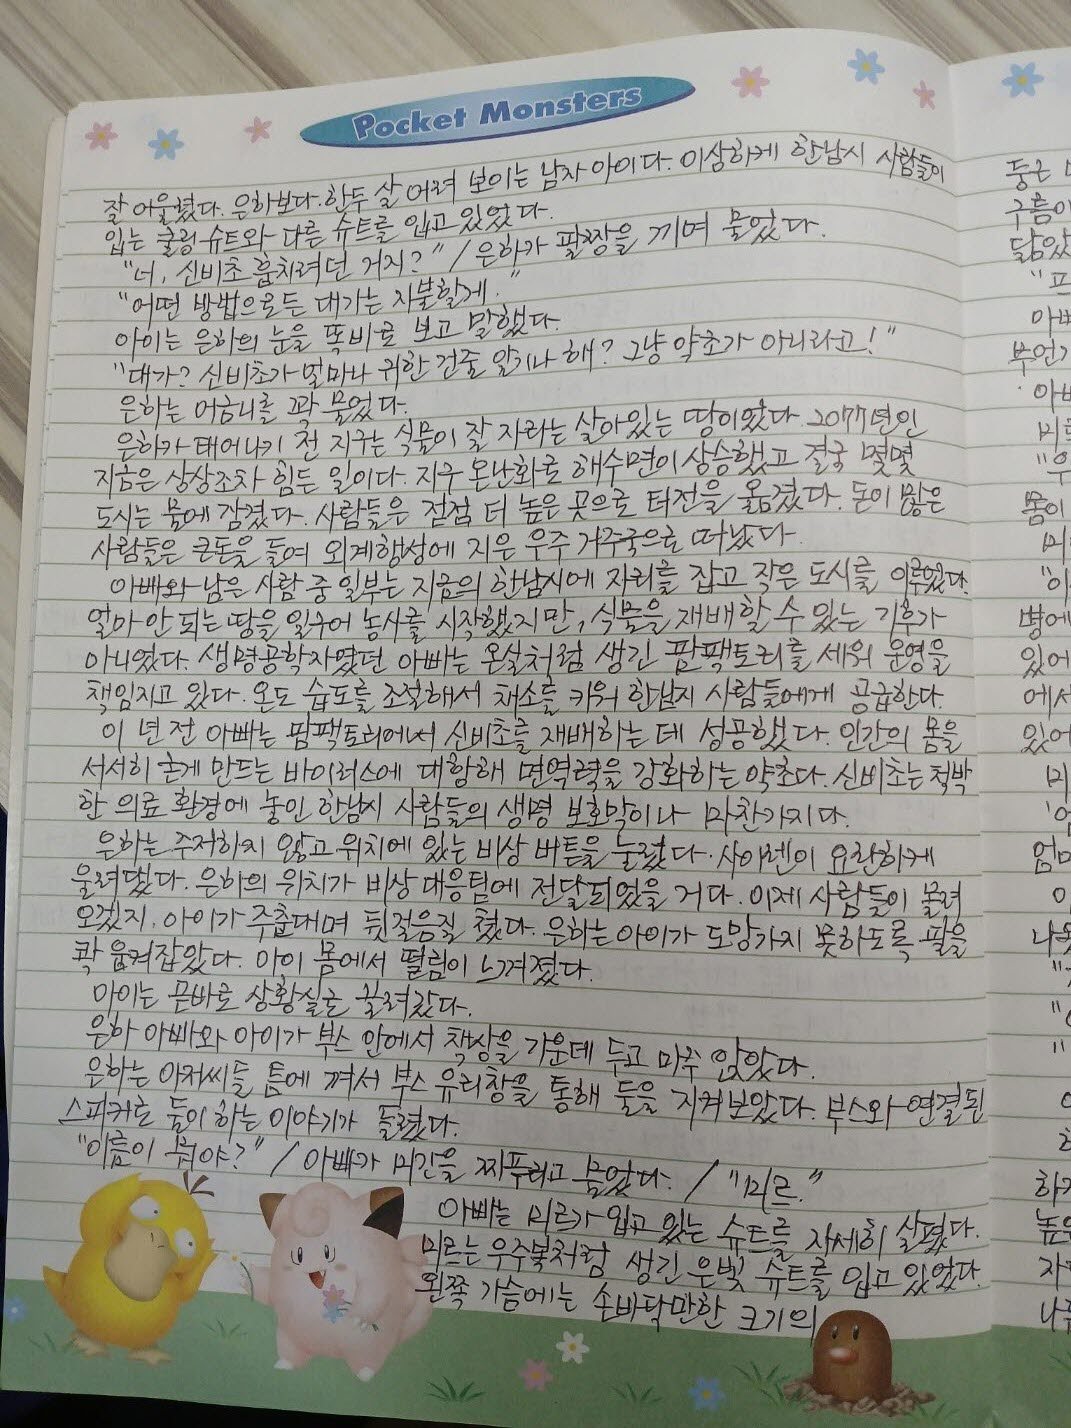 Pocket Monsters
잘 어울렸다. 은하보다. 한두 살 어려 보이는 남자 아이다. 이상하게 한남시 사람들이
입는 쿨링 슈트와 다른 슈트를 입고 있었다.
"너, 신비초 훔치려던 거지?" / 은하가 팔짱을 끼며 물었다.
"어떤 방법으로든 대가는 지불할게."
아이는 은하의 눈을 똑바로 보고 말했다.
"대가? 신비초가 얼마나 귀한 건줄 알기나 해? 그냥 약초가 아니라고!"
은하는 어금니를 꽉 물었다.
은하가 태어나기 전 지구는 식물이 잘 자라는 살아있는 땅이었다. 2077년인
지금은 상상조차 힘든 일이다. 지구 온난화로 해수면이 상승했고 결국 몇몇
도시는 물에 잠겼다. 사람들은 점점 더 높은 곳으로 터전을 옮겼다. 돈이 많은
사람들은 큰돈을 들여 외계행성에 지은 우주 거주국으로 떠났다.
아빠와 남은 사람 중 일부는 지금의 한남시에 자리를 잡고 작은 도시를 이루었다.
얼마 안 되는 땅을 일구어 농사를 시작했지만, 식물을 재배할 수 있는 기후가
아니었다. 생명공학자였던 아빠는 온실처럼 생긴 팜팩토리를 세워 운영을
책임지고 있다. 온도 습도를 조절해서 채소를 키워 한남시 사람들에게 공급한다.
이 년 전 아빠는 팜팩토리에서 신비초를 재배하는 데 성공했다. 인간의 몸을
서서히 굳게 만드는 바이러스에 대항해 면역력을 강화하는 약초다. 신비초는 척박
한 의료 환경에 놓인 한남시 사람들의 생명 보호막이나 마찬가지다.
은하는 주저하지 않고 위치에 있는 비상 버튼을 눌렀다. 사이렌이 요란하게
울려댔다. 은하의 위치가 비상 대응팀에 전달되었을 거다. 이제 사람들이 몰려
오겠지. 아이가 주춤대며 뒷걸음질 쳤다. 은하는 아이가 도망가지 못하도록 팔을
콱 움켜잡았다. 아이 몸에서 떨림이 느껴졌다.
아이는 곧바로 상황실로 끌려갔다.
은하 아빠와 아이가 부스 안에서 책상을 가운데 두고 마주 앉았다.
은하는 아저씨들 틈에 껴서 부스 유리창을 통해 둘을 지켜보았다. 부스와 연결된
스피커로 둘이 하는 이야기가 들렸다.
"이름이 뭐야?" / 아빠가 미간을 찌푸리고 물었다. / "미르."
아빠는 미르가 입고 있는 슈트를 자세히 살폈다.
미르는 우주복처럼 생긴 은빛 슈트를 입고 있었다.
왼쪽 가슴에는 손바닥만한 크기의